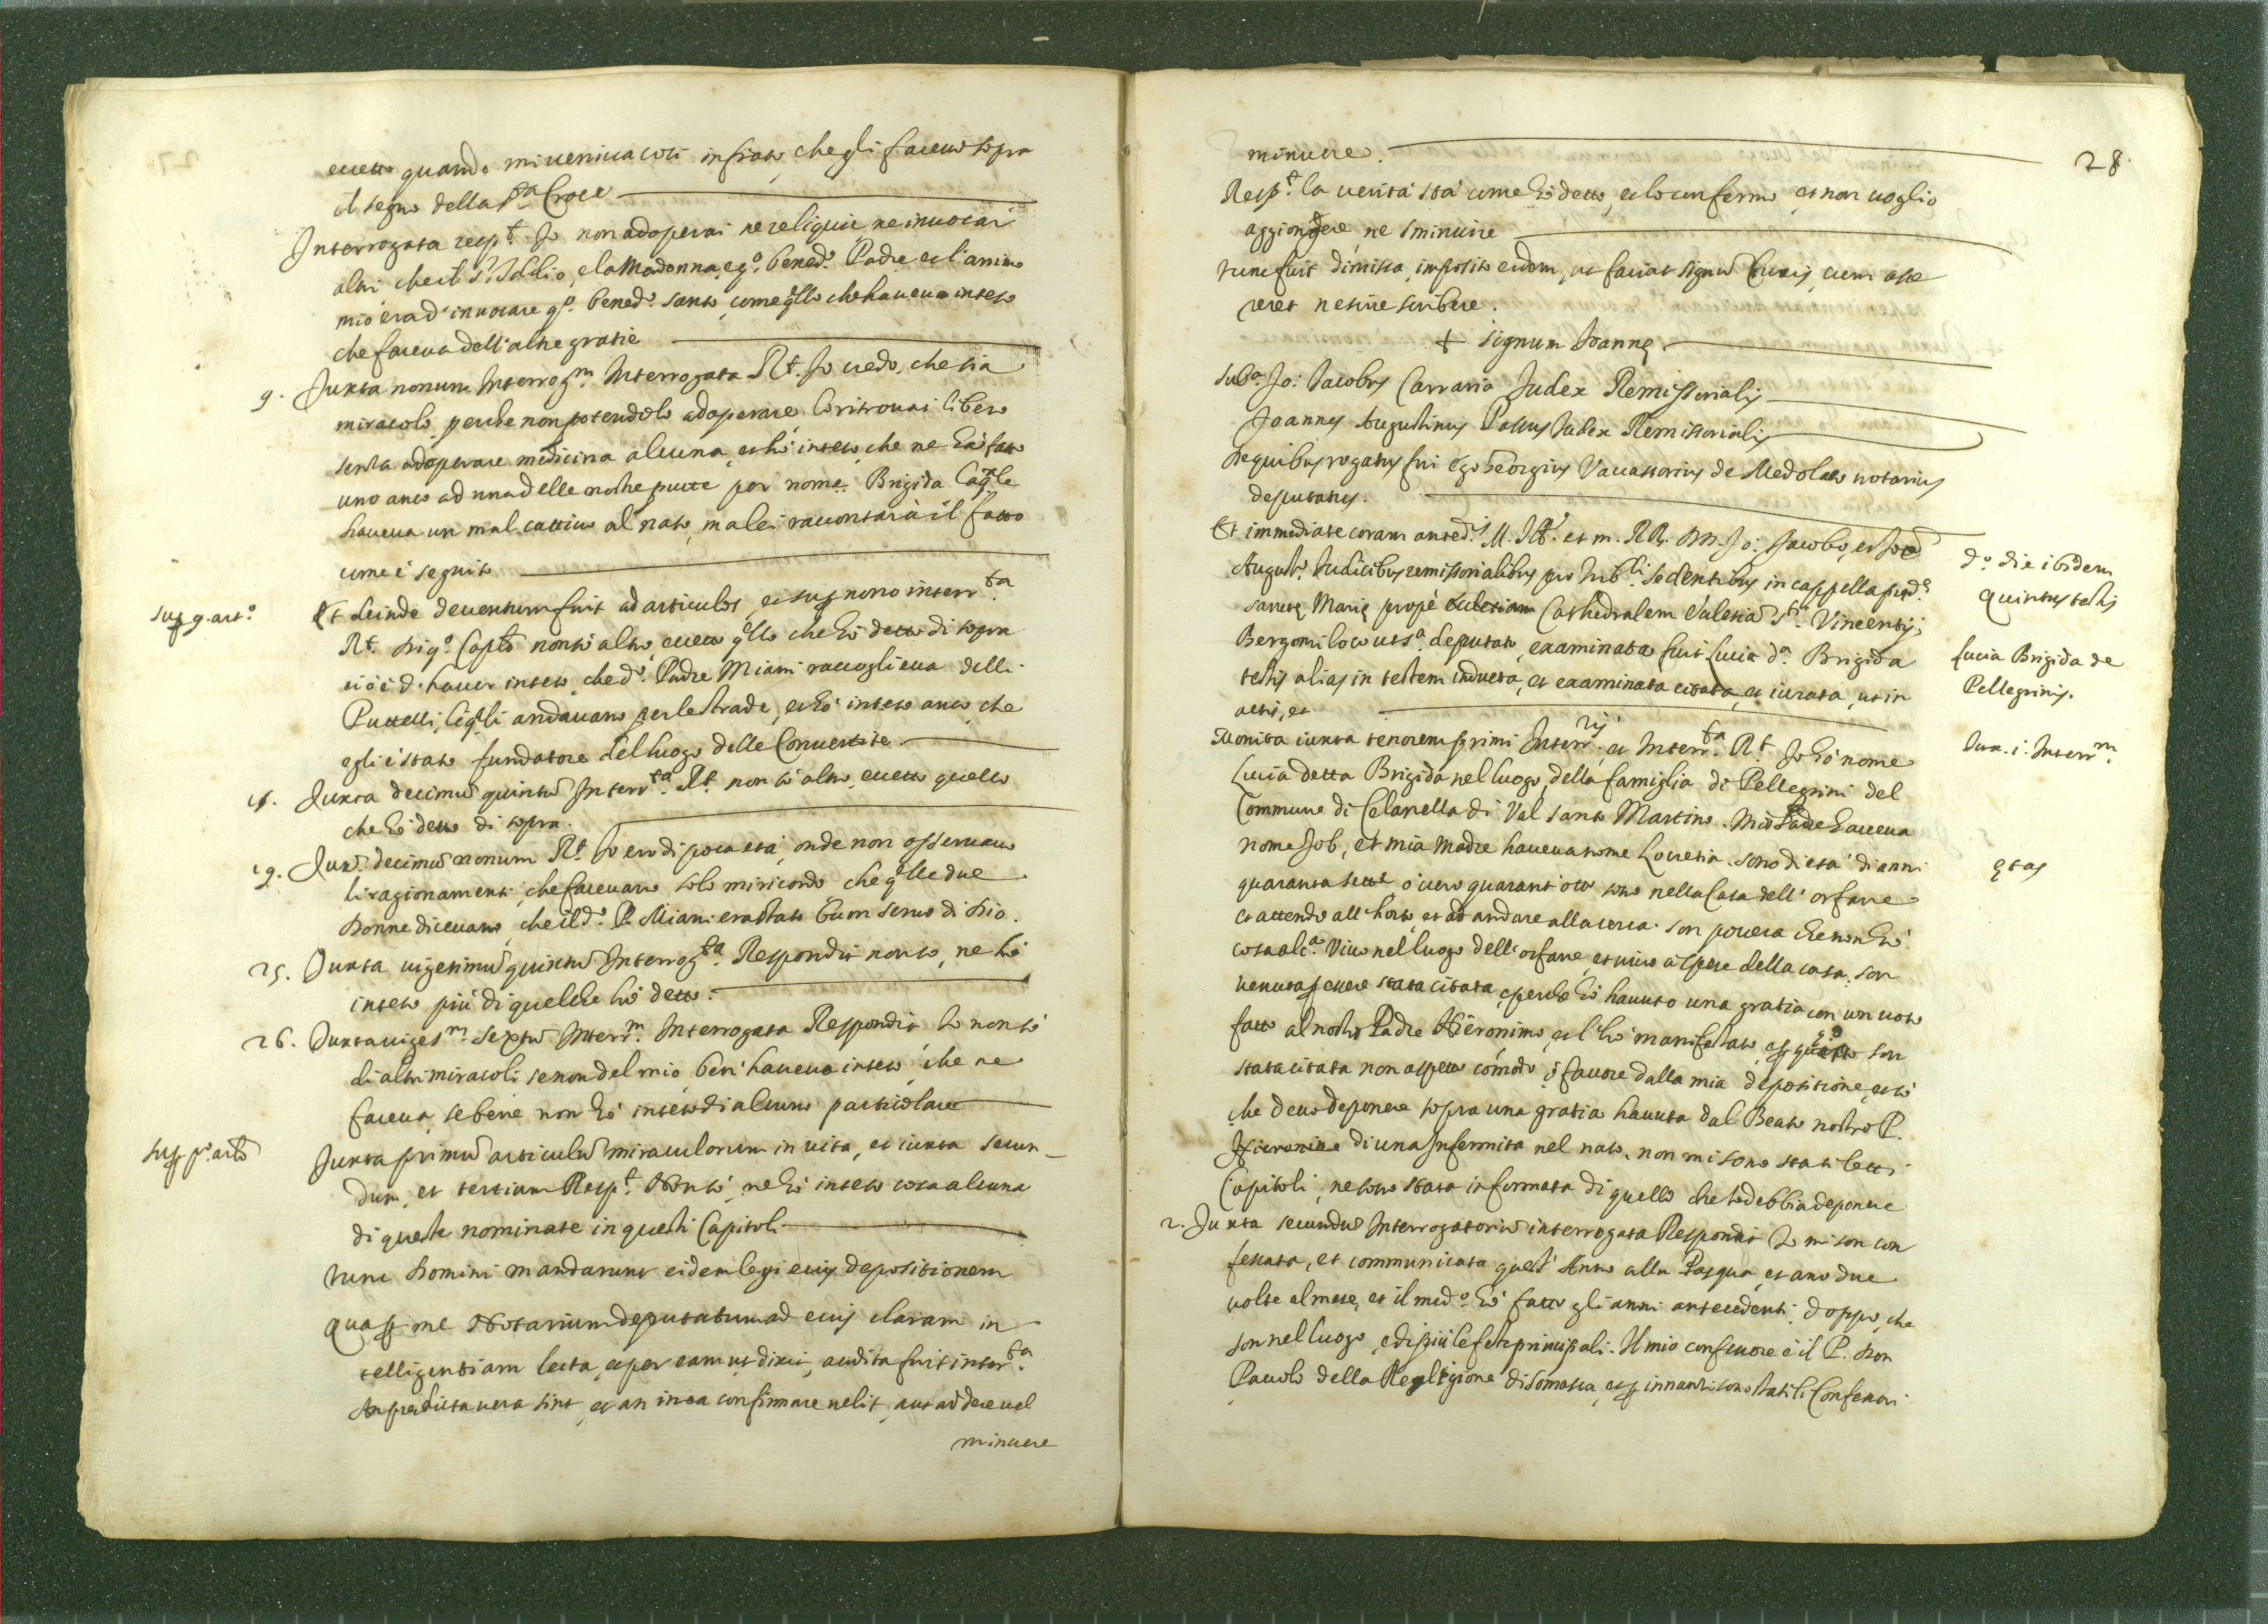 eccetto quando mi veniva così infiato, che gli faceuo sopra
il segno della S.ta Croce
Interrogata resp.t Io non adoperai ne reliquie, ne inuocai
altri che il S.r Iddio, e la Madonna, e q.o bened.o Padre et l'animo
mio era d'inuocare q.o bened.o santo, come q.llo che haueuo inteso
che faceua dell'altre gratie
9. Juxta nonum Interrog.m Interrogata R.t Io credo, che sia
miracolo, perche non potendolo adoperare lo ritrouai libero
senza adoperare medicina alcuna, et hò inteso, che ne hà fatto
uno anco ad una delle nostre putte per nome Brigida la q.le
haueua un mal cattiuo al naso, ma lei raccontarà il fatto
come è seguito
sup. 9. art.o
Et deinde deuentum fuit ad articulos, et sup. nono interr.ta
R.t di q.o Cap.lo non sò altro, eccetto q.llo che hò detto di sopra
ciò è d'hauer inteso, che d.o Padre Miani raccoglieua delli
Puttelli, li q.li andauano per le strade, et hò inteso anco, che
egli è stato fundatore del luogo delle Conuertite
15. Juxta decimũ quintũ Interr.ta R.t non sò altro, eccetto quello
che hò detto di sopra.
19. Jux.a decimũ nonum R.t Io ero di poca età, onde non osseruauo
li ragionamenti, che faceuano solo mi ricordo che q.lle due
Donne diceuano, che il d.o P. Miani era stato bum seruo di Dio.
25. Juxta uigesimũ quintũ Interrog.ta Respondit non sò, ne hò
inteso più di quel che hò detto.
26. Juxta uiges.m sextũ Interr.m Interrogata Respondit Io non sò
di altri miracoli se non del mio, ben' haueuo inteso, che ne
faceua, se bene non hò inteso di alcuno particolare
sup. p.o art.lo
Juxta primũ articulũ miraculorum in uita, et iuxta secun-
dum, et tertium Resp.t Non sò, ne hò inteso cosa alcuna
di queste nominate in questi Capitoli
tunc Domini mandarunt eidem legi eius depositionem
qua p. me Notarium deputatum ad eius claram in
telligentiam lecta, et per eam ut dixit, audita fuit inter.ta
An predicta uera sint, et an in ea confirmare uelit, aut addere uel
minuere
28.
minuere.
Resp.t la uerità stà come hò detto, et lo confermo et non uoglio
aggiongere, ne sminuire
tunc fuit dimissa, imposito eidem, ut faciat signũ Crucis, cum asse
reret nescire scribere.
+ signum Joannę
Sub.a Jo: Jacobus Carrara Judex Remissorialis
Joannes Augustinus Passus Judex Remissorialis
De quibus rogatus fui Ego Georgius Vauassorius de Medolaco notarius
deputatus.
d.o die ibidem
quintus testis
Et immediate coram anted.is M. Ill. et m. RR. DD. Jo: Jacobo, et Joẽ
August.o Judicibus remissorialibus pro trib.li sedentibus in cappella pred.a
sanctę Marię propè Ecclesiam Cathedralem Ecclesiã S.ti Vincentij
Bergomi loco ut s.a deputato, examinata fuit Lucia d.a Brigida
Lucia Brigida de
Pellegrinis.
testis alias in testem inducta, et examinata citata, et iurata, ut in
actis, et
Jux. i. Interr.m
Monita iuxta tenorem primi Interr.rij et Interr.ta R.t Io hò nome
Lucia detta Brigida nel luogo, della famiglia di Pellegrini del
Commune di Celanella di Val santo Martino. Mio Padre haueua
nome Job, et mia Madre haueua nome Lucretia. sono di età di anni
ętas
quaranta sette ò uero quarant'otto sono nella Casa dell'orfane
et attendo all'horto, et ad andare alla cerca. son pouera che non hò
cosa alc.a Viuo nel luogo dell'orfane, et uiuo à spese della casa. son
uenuta p. essere stata citata, e perche hò hauuto una gratia con un uoto
fatto al nostro Padre Hieronimo, et l'hò manifestato, et p. questo son
stata citata non aspetto comodo, ò fauore dalla mia depositione, et sò
che deuo deponere sopra una gratia hauuta dal Beato nostro P.
Hieronimo di una Infermità nel naso. non mi sono stati letti
Capitoli, ne sono stata informata di quello che Io debbia deponere
2. Juxta secundũ Interrogatoriũ interrogata Respondit Io mi son con
fessata, et communicata quest'Anno alla Pasqua, et anco due
uolte al mese, et il med.o hò fatto gli anni antecedenti, doppo, che
son nel luogo, e di più le feste principali. Il mio confessore è il P. Don
Pauolo della Religione di Somasca, et p. innanti sono stati li Confessori